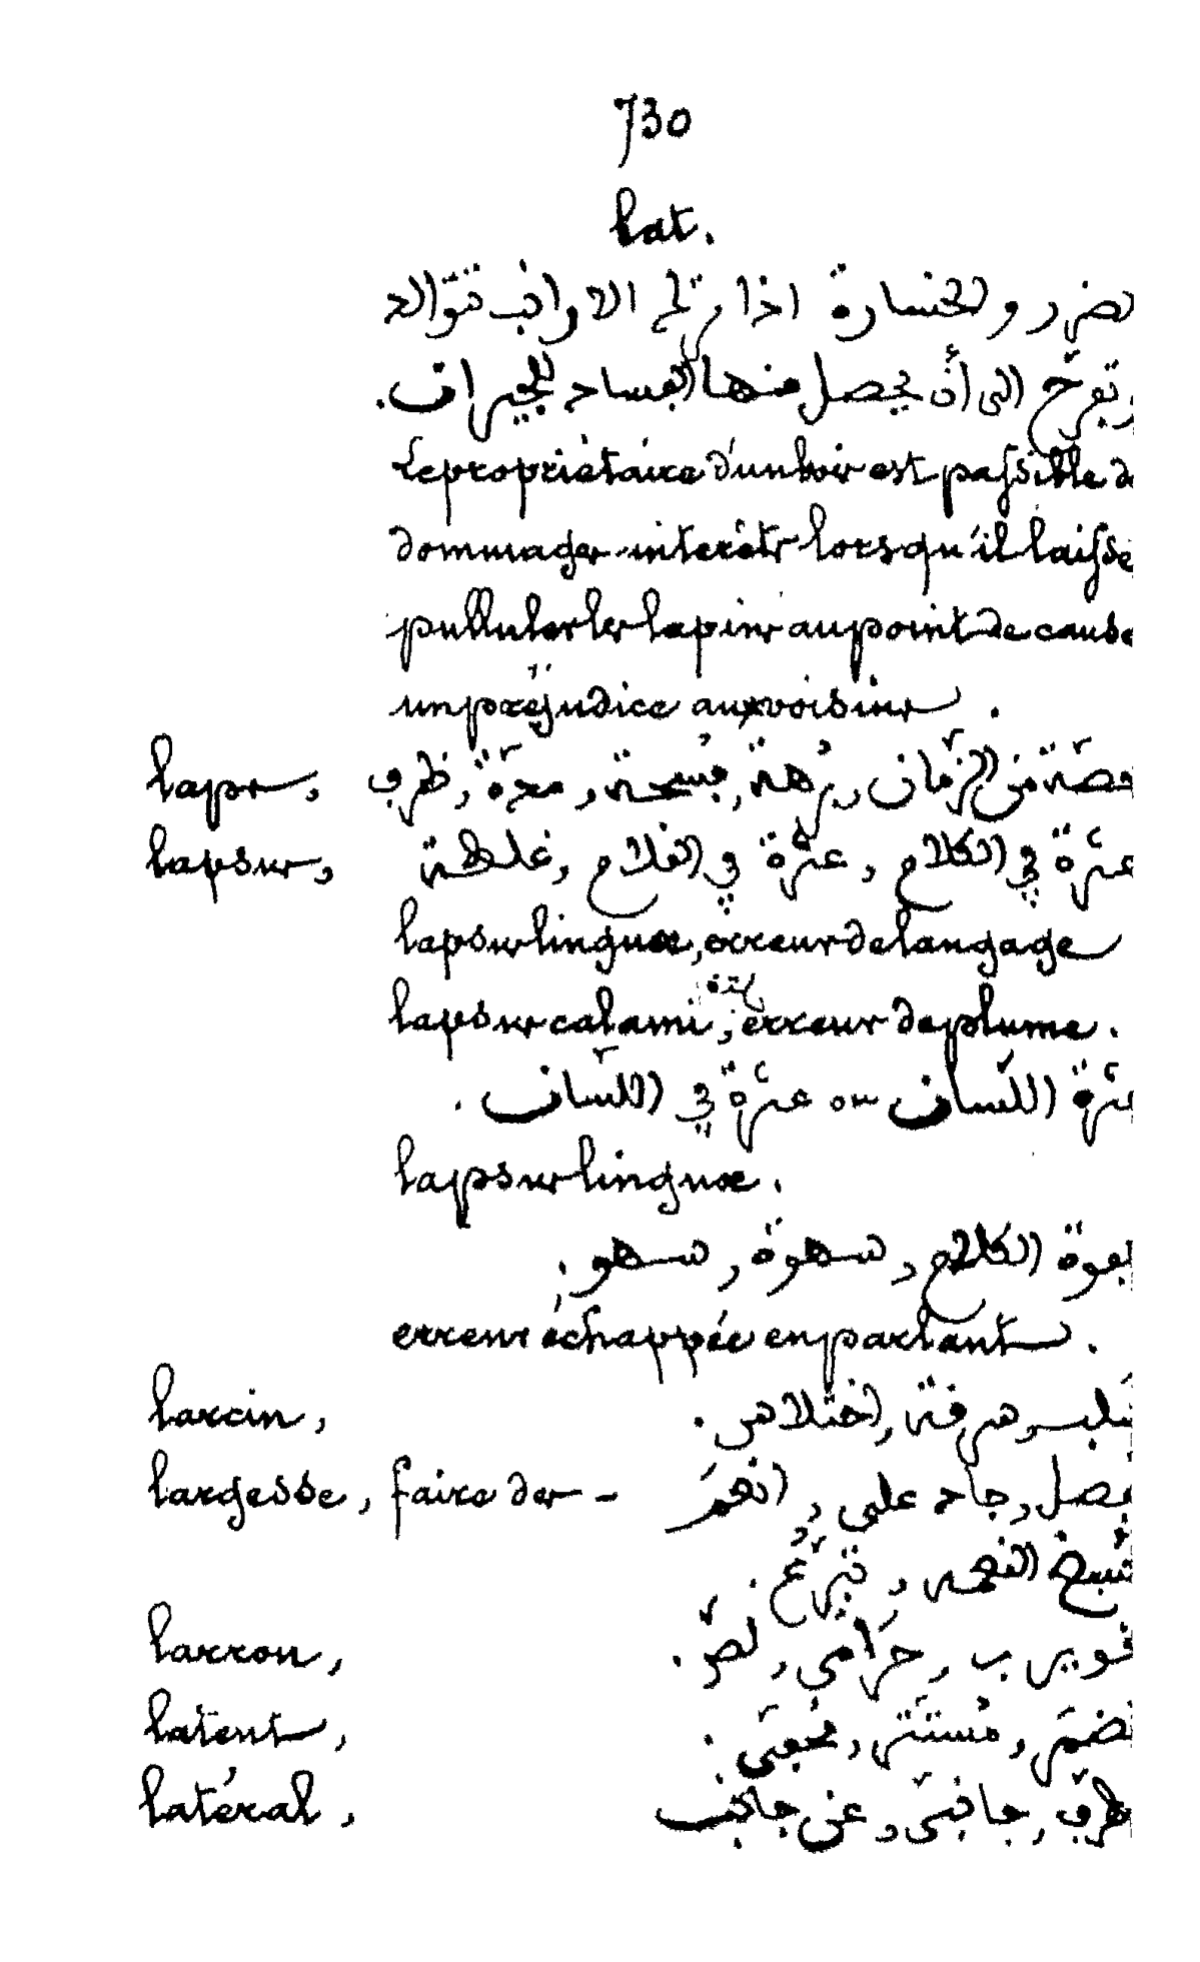 730
lat.
لضرر والخسارة اذا ترك الارانب تتوالد
وتفرّخ الى أن يحصل منها الفساد للجيران.
Le propriétaire d'un bois est passible de
dommages-intérêts lorsqu'il laisse
pulluler les lapins au point de cause
un préjudice aux voisins.
laps, حصّة من الزّمان, برُهة, فسُحة, مدّة, ظرف
lapsus, عثرة في الكلام, عثرة في القلام, غلطة
lapsus linguæ, erreur de langage
lapsus calami, erreur de plume.
عثرة اللّسان ou عثرة في اللّسان.
lapsus linguæ.
الكلام, سهوة, سهو.
erreur échappée en parlant.
larcin, سلب, سرقة, اختلاس.
largesse, faire des - فضل, جاد على, انعَم
النعمة, تبرّع.
larron, حرَامي, لصّ.
latent, مُستتَر, مخفي.
latéral, طرفي, جانبي, عن جانب